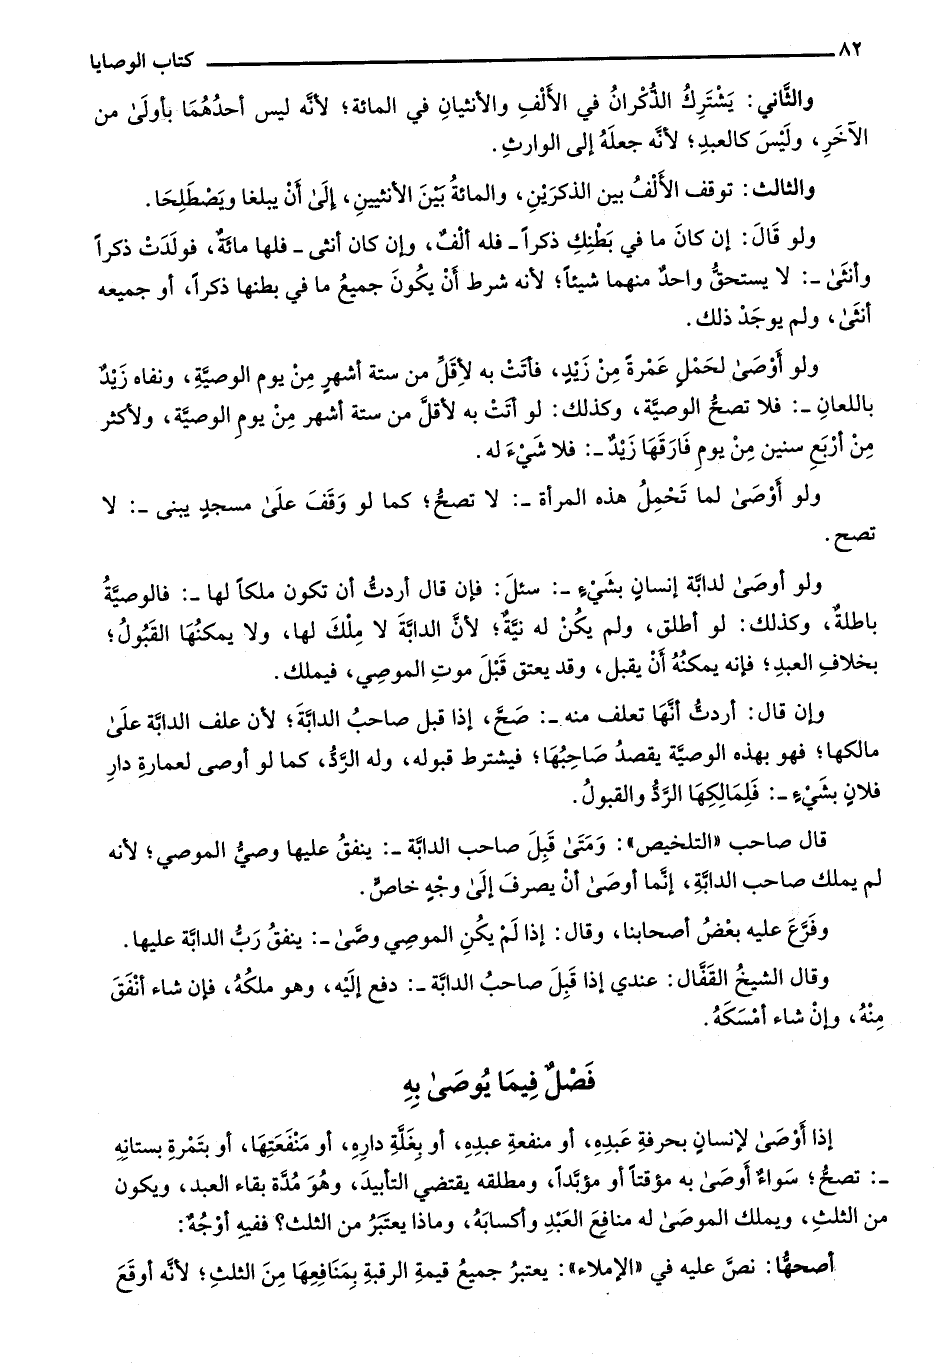 ٨٢ كتاب الوصايا
والثَّاني: يَشْتَرِكُ الذُّكْرانُ في الأَلْفِ والأنثيانِ في المائة؛ لأنَّه ليس أحدُهُمَا بأولَىٰ من
الآخَرِ، ولَيْسَ كالعبدِ؛ لأنَّه جعلَهُ إلى الوارثِ.
والثالث: توقف الأَلْفُ بين الذكرَيْنِ، والمائةُ بَيْنَ الأنثيينِ، إلَىٰ أَنْ يبلغا ويَصْطَلِحَا.
ولو قَالَ: إن كانَ ما في بَطْنِكِ ذكراً ـ فله ألْفٌ، وإن كان أنثى ـ فلها مائَةٌ، فولَدَتْ ذكراً
وأنثَىٰ ـ: لا يستحقُّ واحدٌ منهما شيئاً؛ لأنه شرط أَنْ يكُونَ جميعُ ما في بطنها ذكراً، أو جميعه
أنثَىٰ، ولم يوجَدْ ذلك.
ولو أَوْصَىٰ لحَمْلِ عَمْرةَ مِنْ زَيْدٍ، فأتَتْ به لأقَلِّ من ستة أشهرٍ مِنْ يوم الوصيَّةِ، ونفاه زَيْدٌ
باللعانِ ـ: فلا تصحُّ الوصيَّة، وكذلك: لو أتَتْ به لأقلَّ من ستة أشهر مِنْ يومِ الوصيَّة، ولأكثر
مِنْ أرْبَعِ سنين مِنْ يومِ فَارَقَهَا زَيْدٌ ـ: فلا شَيْءَ له.
ولو أَوْصَىٰ لما تَحْمِلُ هذه المرأة ـ: لا تصحُّ؛ كما لو وَقَفَ علَىٰ مسجدٍ يبنى ـ: لا
تصح.
ولو أوصَىٰ لدابَّة إنسانٍ بشَيْءٍ ـ: سئلَ: فإن قال أردتُّ أن تكون ملكاً لها ـ: فالوصيَّةُ
باطلةٌ، وكذلك: لو أطلق، ولم يكُنْ له نيَّةٌ؛ لأنَّ الدابَّةَ لا مِلْكَ لها، ولا يمكنُهَا القَبُولُ؛
بخلافِ العبدِ؛ فإنه يمكنُهُ أَنْ يقبل، وقد يعتق قَبْلَ موتِ الموصِي، فيملك.
وإن قال: أردتُّ أنَّهَا تعلف منه ـ: صَحَّ، إذا قبل صاحبُ الدابَّةَ؛ لأن علف الدابَّة علَىٰ
مالكها؛ فهو بهذه الوصيَّة يقصدُ صَاحِبُهَا؛ فيشترط قبوله، وله الرَّدُّ، كما لو أوصى لعمارةِ دارِ
فلانٍ بشَيْءٍ ـ: فَلِمَالِكِهَا الرَّدُّ والقبولُ.
قال صاحب «التلخيص»: وَمَتَىٰ قَبِلَ صاحب الدابَّة ـ: ينفقُ عليها وصيُّ الموصي؛ لأنه
لم يملك صاحب الدابَّةِ، إنَّما أوصَىٰ أنْ يصرفَ إلَىٰ وجْهٍ خاصٍّ.
وفَرَّعَ عليه بعْضُ أصحابنا، وقال: إذا لَمْ يكُنِ الموصِي وصَّىٰ ـ: ينفقُ رَبُّ الدابَّة عليها.
وقال الشيخُ القَفَّال: عندي إذا قَبِلَ صاحبُ الدابَّة ـ: دفع إلَيْه، وهو ملكُهُ، فإن شاء أنْفَقَ
مِنْهُ، وإنْ شاء أمْسَكَهُ.
فَصْلٌ فِيمَا يُوصَىٰ بِهِ
إذا أَوْصَىٰ لإنسانٍ بحرفةِ عَبدِهِ، أو منفعةِ عبدِهِ، أو بغَلَّةِ دارِهِ، أو مَنْفَعَتِهَا، أو بثَمْرةِ بستانِهِ
ـ: تصحُّ؛ سَواءٌ أَوصَىٰ به مؤقتاً أو مؤبَّداً، ومطلقه يقتضي التأبيدَ، وهُوَ مُدَّة بقاء العبد، ويكون
من الثلثِ، ويملك الموصَىٰ له منافعَ العَبْدِ وأكسابَهُ، وماذا يعتبَرُ من الثلث؟ ففيهِ أوْجُهٌ:
أصحهُّا: نصَّ عليه في «الإملاء»: يعتبرُ جميعُ قيمةِ الرقبةِ بِمَنَافِعِهَا مِنَ الثلثِ؛ لأنَّه أوقَعَ